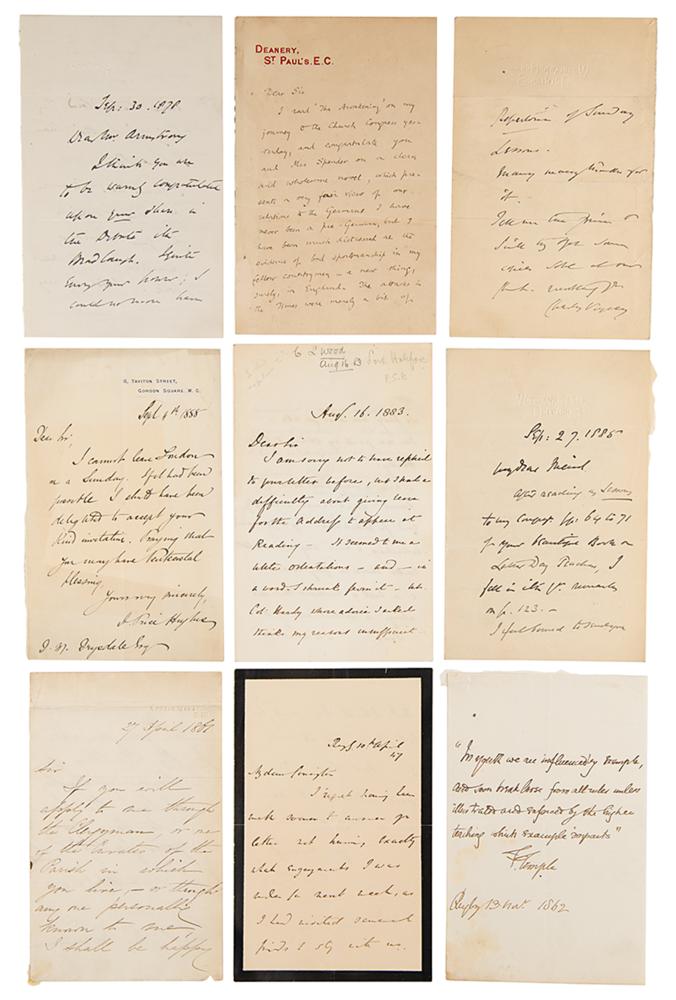 Sep: 30. 1878
Dear Mr Armstrong
I think you are
to be warmly congratulated
upon your share in
the Debate with
Bradlaugh. Quite
envy your power; I
could no more have
DEANERY,
ST PAUL'S. E.C.
Dear Sir
I read 'The Awakening' on my
journey to the Church Congress yes-
terday, and congratulate you
and Mrs Spender on a clever
and wholesome novel, which pre-
sents a very fair view of our
relations to the Germans. I have
never been a pro-German, but I
have been much distressed at the
evidence of bad sportsmanship in my
fellow countrymen – a new thing,
surely, in England. The attacks in
the Times were merely a bit of
of Sunday
Lessons.
Many many thanks for
it.
Tell me the price &
Charles Voysey
8, TAVITON STREET,
GORDON SQUARE. W.C.
Sept 4th 1888
Dear Sir,
I cannot leave London
on a Sunday. If it had been
possible I should have been
delighted to accept your
kind invitation. Praying that
you may have Pentecostal
blessing,
Yours very sincerely,
H. Price Hughes
Drysdale Esq
C L Wood
Aug 16 83
Lord Halifax
Aug. 16. 1883.
Dear Sir
I am sorry not to have replied
to your letter before, but I had a
difficulty about giving leave
for the Address to appear at
Reading – It seemed to me a
little ostentatious – and – in
a word I shrank from it – but
Col: Hardy whose advice I asked
thinks my reasons insufficient
Sep: 27. 1885
My dear Friend
After reading as Lesson
to my Congregn pp: 64 to 71
of your beautiful Book on
Latter Day Teachers, I
fell in with yr. remarks
on p. 123. –
I feel bound to
27 April 1861
Sir
If you will
apply to me through
the Clergyman, or one
of the Curates of the
Parish in which
you live – or through
any one personally
known to me,
I shall be happy
10th April
47
My dear Conington
I regret having been
letter not knowing exactly
what engagements I was
under for next week, as
I had invited several
friends to stay with us.
"In youth we are influenced by example,
and soon break loose from all rules unless
illustrated and enforced by the higher
teaching which example imparts"
F. Temple
Rugby 13 Nov. 1862